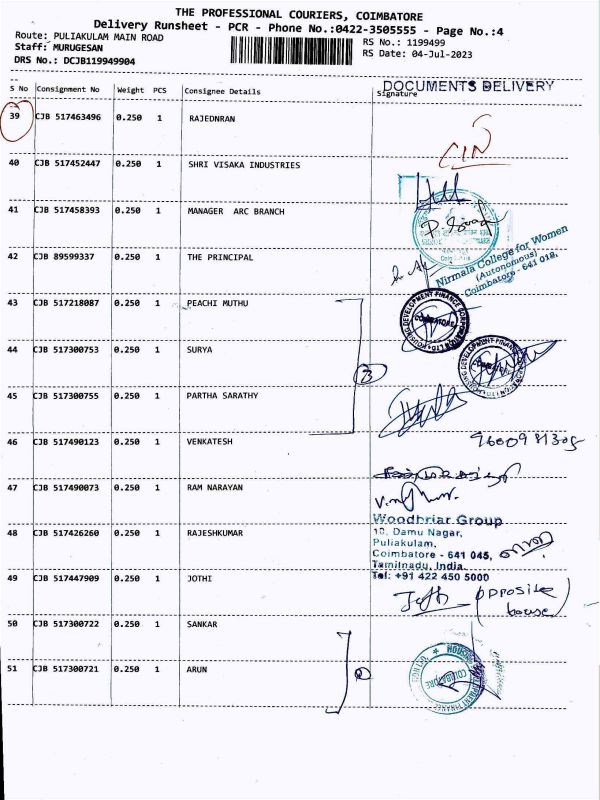 THE PROFESSIONAL COURIERS, COIMBATORE
Delivery Runsheet - PCR - Phone No.:0422-3505555 - Page No.:4
Route: PULIAKULAM MAIN ROAD
Staff: MURUGESAN
DRS No.: DCJB119949904
RS No.: 1199499
RS Date: 04-Jul-2023
DOCUMENTS DELIVERY
S No Consignment No Weight PCS Consignee Details Signature
39 CJB 517463496 0.250 1 RAJEDNRAN
CIN
40 CJB 517452447 0.250 1 SHRI VISAKA INDUSTRIES
41 CJB 517458393 0.250 1 MANAGER ARC BRANCH
42 CJB 89599337 0.250 1 THE PRINCIPAL
Nirmala College for Women
(Autonomous)
Coimbatore - 641 018.
43 CJB 517218087 0.250 1 PEACHI MUTHU
COIMBATORE
44 CJB 517300753 0.250 1 SURYA
3
45 CJB 517300755 0.250 1 PARTHA SARATHY
46 CJB 517490123 0.250 1 VENKATESH
47 CJB 517490073 0.250 1 RAM NARAYAN
Woodbriar Group
48 CJB 517426260 0.250 1 RAJESHKUMAR
18, Damu Nagar,
Puliakulam,
Coimbatore - 641 045,
Tamilnadu, India.
Tel: +91 422 450 5000
49 CJB 517447909 0.250 1 JOTHI
Jothi (opposite
house)
50 CJB 517300722 0.250 1 SANKAR
51 CJB 517300721 0.250 1 ARUN
COIMBATORE